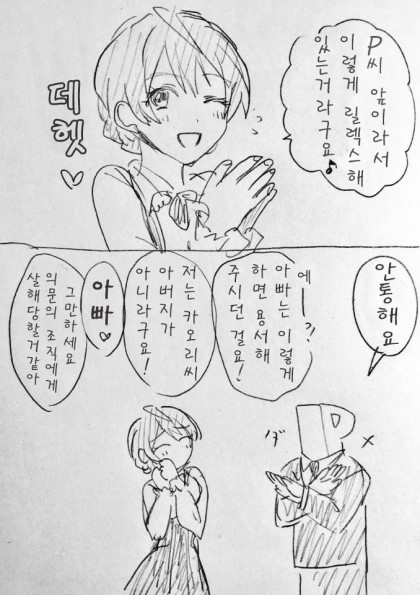 P씨 앞이라서
이렇게 릴렉스해
있는거라구요♪
데헷♡
안통해요
에ー?!
아빠는 이렇게
하면 용서해
주시던 걸요!
저는 카오리씨
아버지가
아니라구요!
아빠♥
그만하세요
의문의 조직에게
살해 당할거같아
P